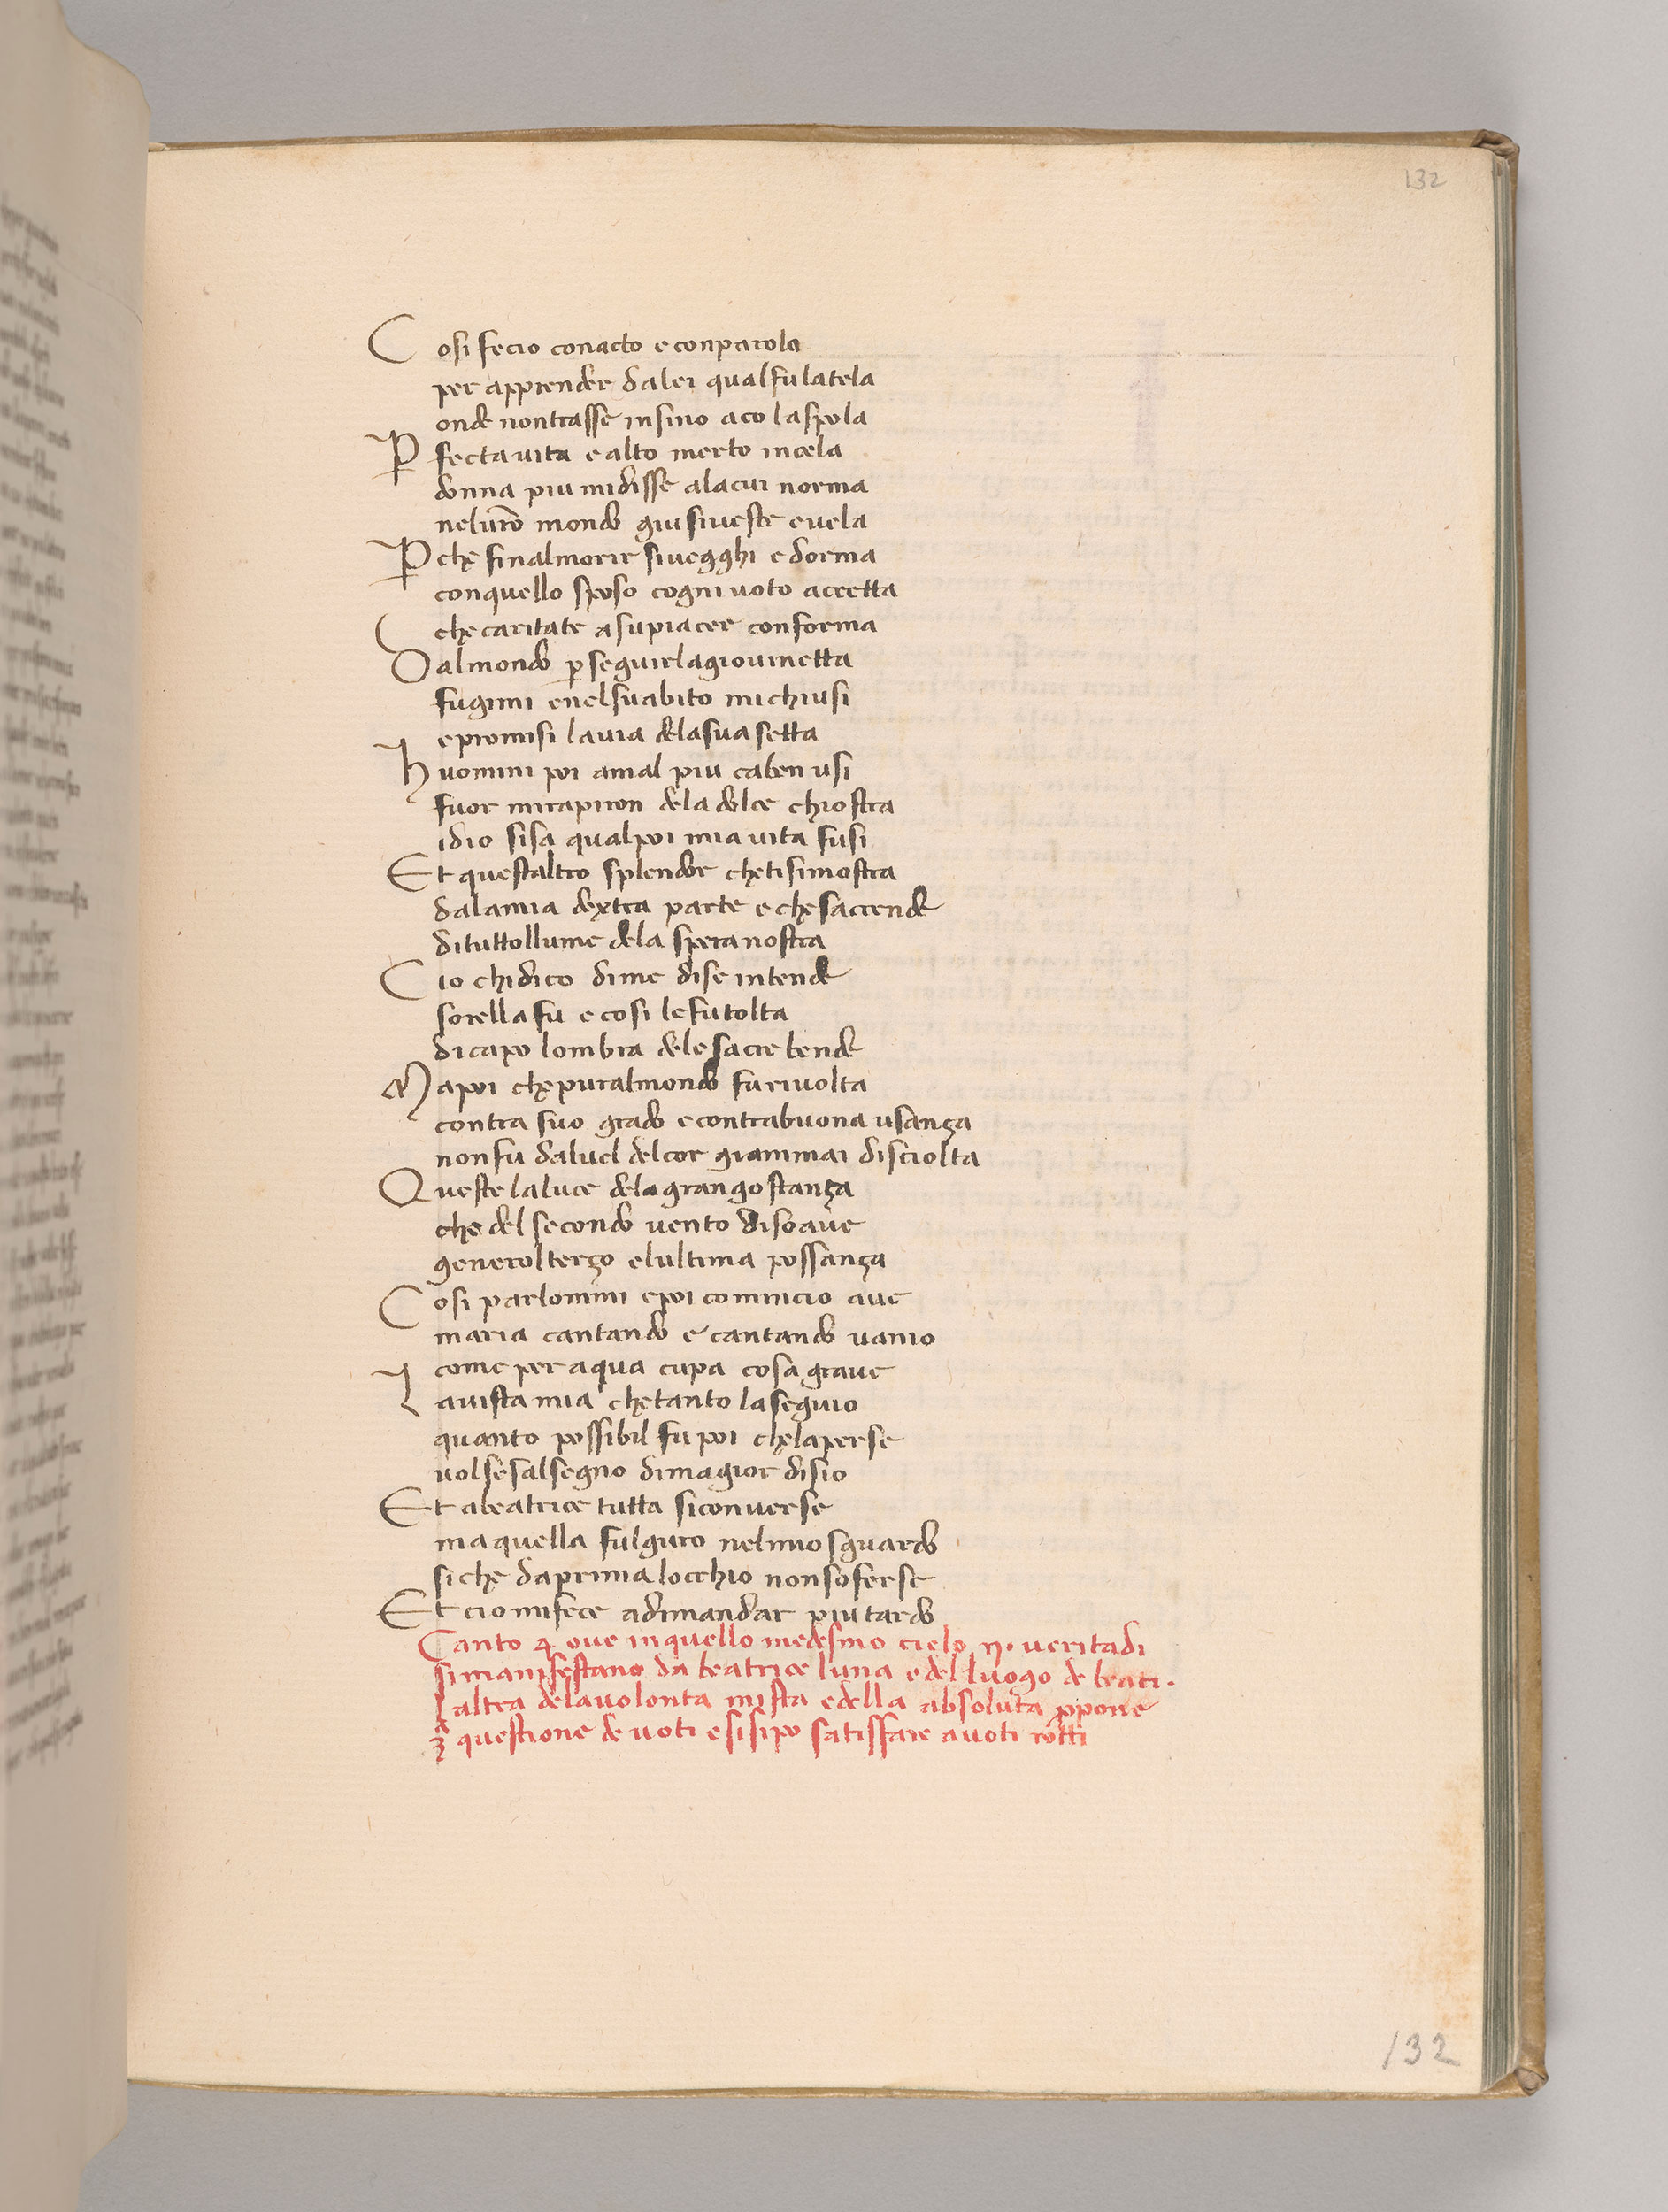 132
Cosi fecio conacto e conparola
per apprender dalei qual fu latela
onde nontrasse insino aco laspola
Pfecta vita e alto merto incela
donna piu midisse alacui norma
nelvr̄o mondo giu siveste e vela
Pche finalmorir sivegghi e dorma
conquello sposo cogni voto accetta
che caritate a supiacer conforma
Dalmondo p seguirla giovinetta
fugimi enelsuabito michiusi
e promisi lavia delasua setta
Huomini poi amal piu caben usi
fuor mirapiron dela dolce chiostra
idio sisa qualpoi mia vita fusi
Et questaltro splendor chetisimostra
dalamia dextra parte e che saccende
di tuttollume dela spera nostra
Cio chidico dime dise intende
sorella fu e cosi lefu tolta
dicapo lombra dele sacre bende
Mapoi che puralmondo fu rivolta
contra suo grado e contrabuona usança
non fu dalvel delcor giammai disciolta
Queste laluce dela gran gostança
che del secondo vento disoave
generolterço elultima possança
Cosi parlommi epoi comincio ave
maria cantando e cantando vanio
come per aqua cupa cosa grave
Lavista mia che tanto laseguio
quanto possibil fu poi chelaperse
volsesalsegno dimagior disio
Et abeatrice tutta siconverse
ma quella fulguro nelmio sguardo
si che daprima locchio nonsoferse
Et cio mifece adimandar piu tardo
Canto 4 ove inquello medesmo cielo .n. veritadi
simanifestano da beatrice luna e del luogo de beati.
laltra delavolonta mista edella absoluta ppone
questione de voti e sisipo satisfare avoti rotti
132